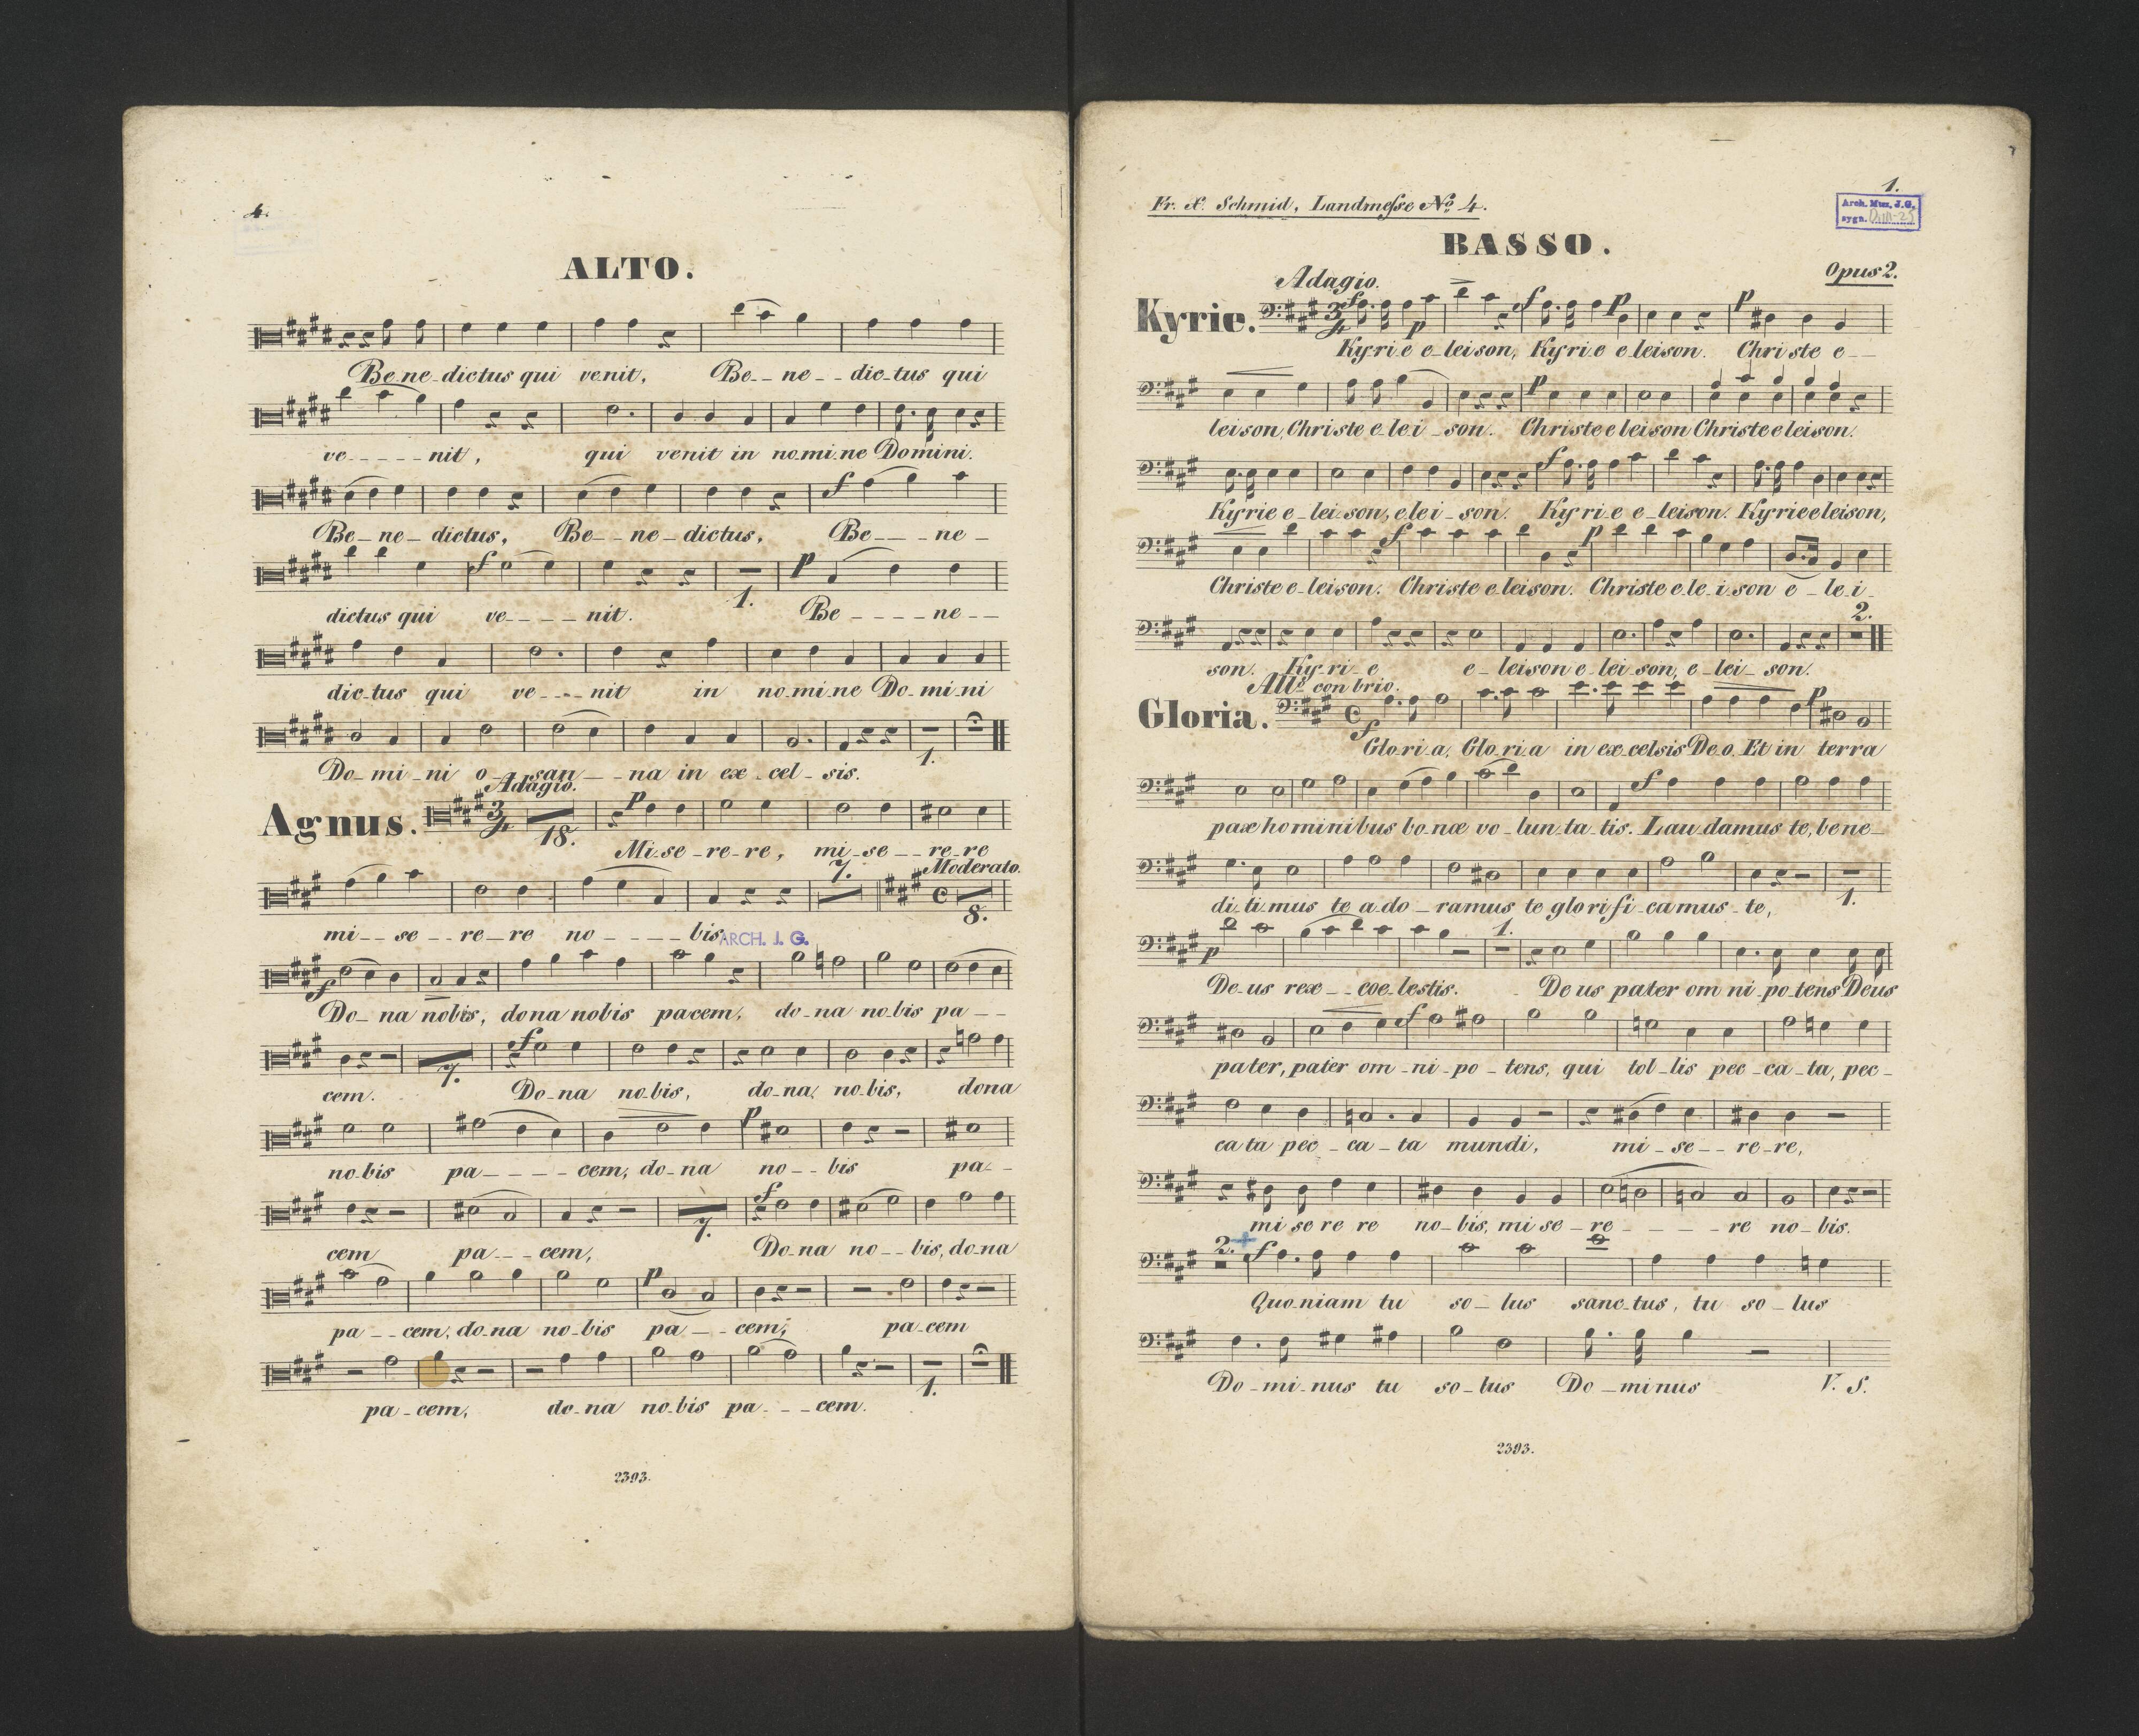 4.
ALTO.
Be_ne_dictus qui venit, Be__ne__dic_tus qui
ve_____nit, qui venit in no_mi_ne Domini.
Be_ne_dictus, Be__ne_dictus, f Be____ne_
dictus qui f ve____nit. 1. p Be_____ne__
dic_tus qui ve____nit in no_mi_ne Do_mi_ni
Do_mi_ni o__san___na in ex_cel_sis. 1.
Agnus. Adagio. 3/4 18. p Mi_se_re_re, mi_se__re_re
mi__se__re_re no_____bis 7. Moderato. 8.
ARCH. J. G.
f Do_na nobis, dona nobis pacem, do_na no_bis pa__
cem. 7. f Do_na no_bis, do_na no_bis, dona
no_bis pa_____cem, do_na p no__bis pa__
cem pa___cem, 7. f Do_na no__bis, do_na
pa__cem, do_na no_bis p pa___cem, pa_cem
pa_cem, do_na no_bis pa____cem. 1.
2393.
1.
Fr. X. Schmid, Landmeſse No. 4.
Arch. Muz. J.G.
sygn.
BASSO.
Opus 2.
Kyrie. Adagio. 3/4 f p f p p
Ky_ri_e e_leison, Ky_ri_e e_leison. Chri_ste e__
leison, Christe e_lei_son. p Christe eleison Christe eleison.
Kyrie e_lei_son, e_lei_son. f Ky_ri_e e_leison. Kyrie eleison,
Christe e_leison. f Christe e_leison. p Christe e_le_i_son e_le_i_
son. Ky_ri_e e_leison e_lei_son, e_lei_son. 2.
Gloria. Allo. con brio. f p
Glo_ri_a, Glo_ri_a in ex_celsis De_o. Et in terra
pax hominibus bo_næ vo_lun_ta_tis. f Lau_damus te, bene_
di_ti_mus te a_do_ramus te glorifi_camus_te, 1.
p De_us rex__coe_lestis. 1. De us pater om ni_po_tens Deus
pater, pater om_ni_po_tens, f qui tol_lis pec_ca_ta, pec_
cata pec_ca_ta mundi, mi_se__re_re,
mi se re re no_bis, mi se_re_____re no_bis.
2. + f Quo_niam tu so_lus sanc_tus, tu so_lus
Do_mi_nus tu so_lus Do_minus V. S.
2393.